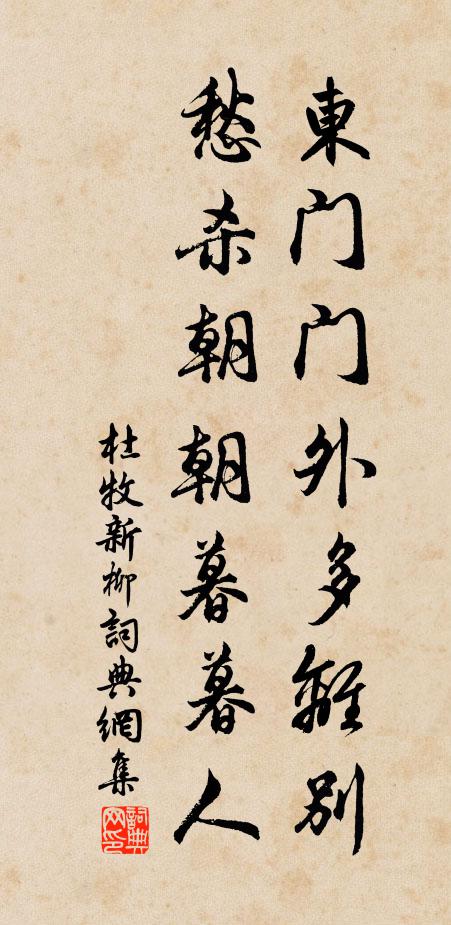 東门门外多離别
愁杀朝朝暮暮人
杜牧新柳詞典網集
詞典网印